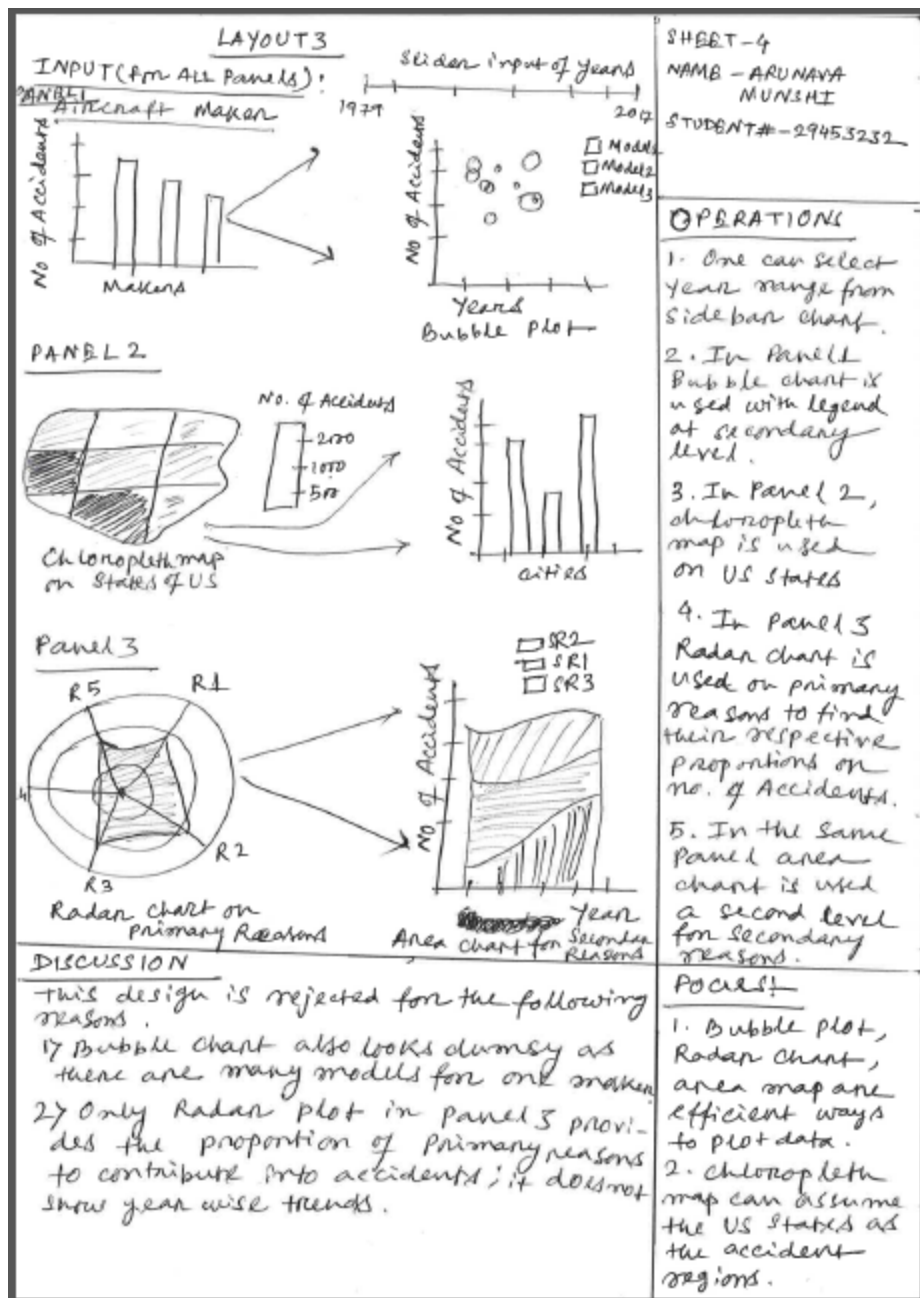 LAYOUT3
INPUT(for ALL Panels):
Slider input of years
1979
2017
PANEL1
Aircraft Maker
No of Accidents
Makers
No of Accidents
Model1
Model2
Model3
Years
Bubble Plot
PANEL 2
No. of Accidents
2000
1000
500
Chloropleth map
on States of US
No of Accidents
cities
Panel 3
R5
R1
4
R2
R3
Radar chart on
Primary Reasons
SR2
SR1
SR3
No of Accidents
Year
Area chart for Secondar
Reasons
DISCUSSION
This design is rejected for the following
reasons.
1) Bubble chart also looks clumsy as
there are many models for one maker
2) Only Radar plot in panel 3 provi-
des the proportion of Primary reasons
to contribute into accidents; it does not
show year wise trends.
SHEET-4
NAME - ARUNAVA
MUNSHI
STUDENT# - 29453232
OPERATIONS
1. One can select
year range from
sidebar chart.
2. In Panel1
Bubble chart is
used with legend
at secondary
level.
3. In Panel 2,
chloropleth
map is used
on US States
4. In Panel 3
Radar chart is
used on primary
reasons to find
their respective
proportions on
no. of Accidents.
5. In the same
Panel area
chart is used
a second level
for secondary
reasons.
FOCUS!
1. Bubble plot,
Radar chart,
area map are
efficient ways
to plot data.
2. Chloropleth
map can assume
the US States as
the accident
regions.